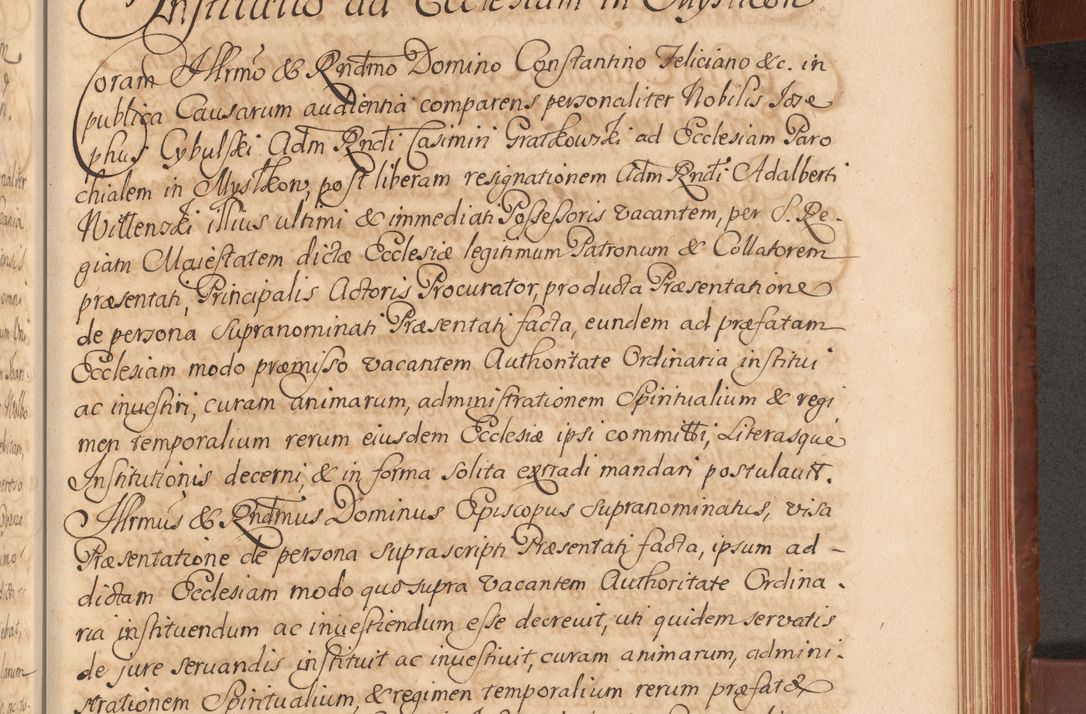 Institutio ad Ecclesiam in Mystkow
Coram Illrmo & Rndmo Domino Constantino Feliciano &c. in
publica Causarum audientia comparens personaliter Nobilis Jose
phus Cybulski Adm Rndi Casimiri Gratkowski ad Ecclesiam Paro
chialem in Mystkow, post liberam resignationem Adm Rndi Adalberti
Willenski illius ultimi & immediati Possessoris vacantem, per S. Re-
giam Maiestatem dictæ Ecclesiæ legitimum Patronum & Collatorem
præsentati, Principalis Actoris Procurator, producta Præsentatione
de persona supranominati Præsentati facta, eundem ad præfatam
Ecclesiam modo præmisso vacantem Authoritate Ordinaria institui
ac inuestiri, curam animarum, administrationem Spiritualium & regi
men temporalium rerum eiusdem Ecclesiæ ipsi committi, Literasque
Institutionis decerni, & in forma solita extradi mandari postulauit.
Illrmus & Rndmus Dominus Episcopus supranominatus, visa
Præsentatione de persona suprascripti Præsentati facta, ipsum ad-
dictam Ecclesiam modo quo supra vacantem Authoritate Ordina-
ria instituendum ac inuestiendum esse decreuit, uti quidem servatis
de jure seruandis instituit ac inuestiuit, curam animarum, admini-
strationem Spiritualium, & regimen temporalium rerum præfatæ